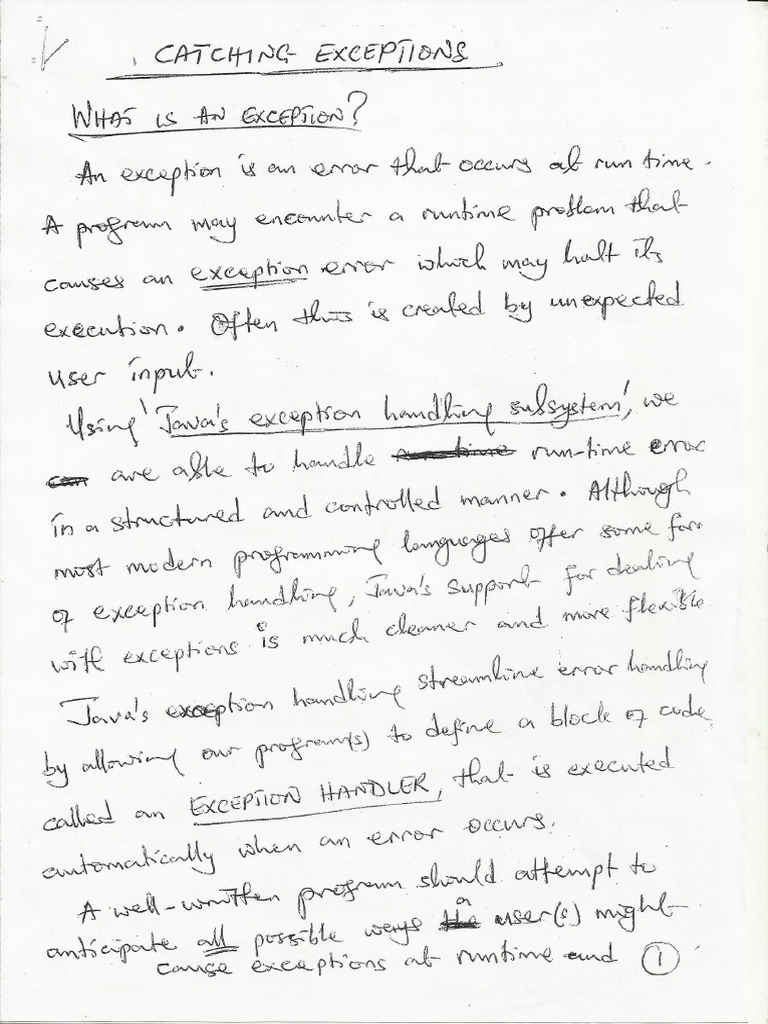 CATCHING EXCEPTIONS
WHAT IS AN EXCEPTION?
An exception is an error that occurs at run time.
A program may encounter a runtime problem that
causes an exception error which may halt its
execution. Often this is created by unexpected
user input.
Using 'Java's exception handling subsystem', we
can are able to handle run-time run-time error
in a structured and controlled manner. Although
most modern programming languages offer some form
of exception handling, Java's support for dealing
with exceptions is much cleaner and more flexible
Java's exception handling streamline error handling
by allowing our program(s) to define a block of code
called an EXCEPTION HANDLER, that is executed
automatically when an error occurs.
A well-written program should attempt to
anticipate all possible ways the a user(s) might
cause exceptions at runtime and 1